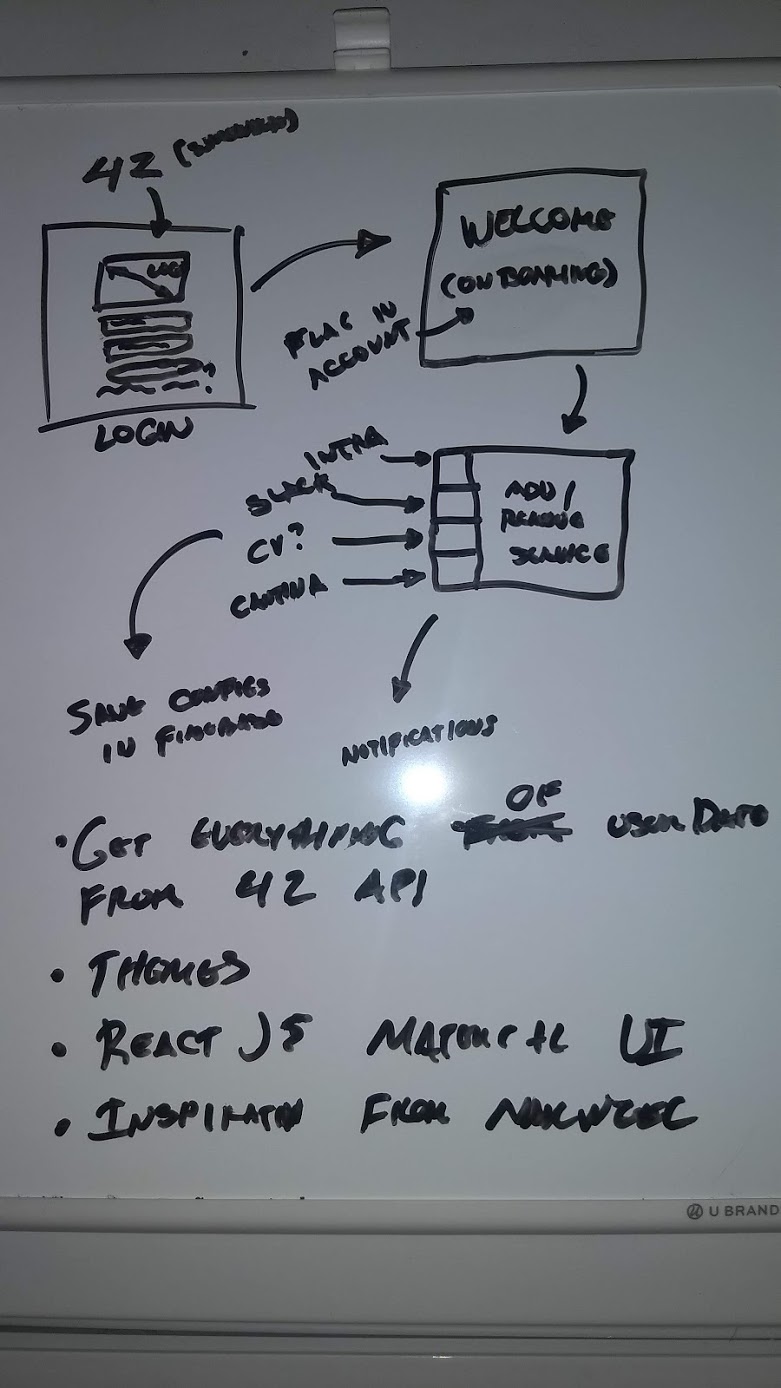 42
LOGIN
WELCOME
(ONBOARDING)
FLAG IN
ACCOUNT
INTRA
SLACK
CV?
CANTINA
ADD /
REMOVE
SERVICE
SAVE CONFIGS
IN FIREBASE
NOTIFICATIONS
• GET EVERYTHING OF USER DATA
FROM 42 API
• THEMES
• REACT JS MATERIAL UI
• INSPIRATION FROM
U BRAND